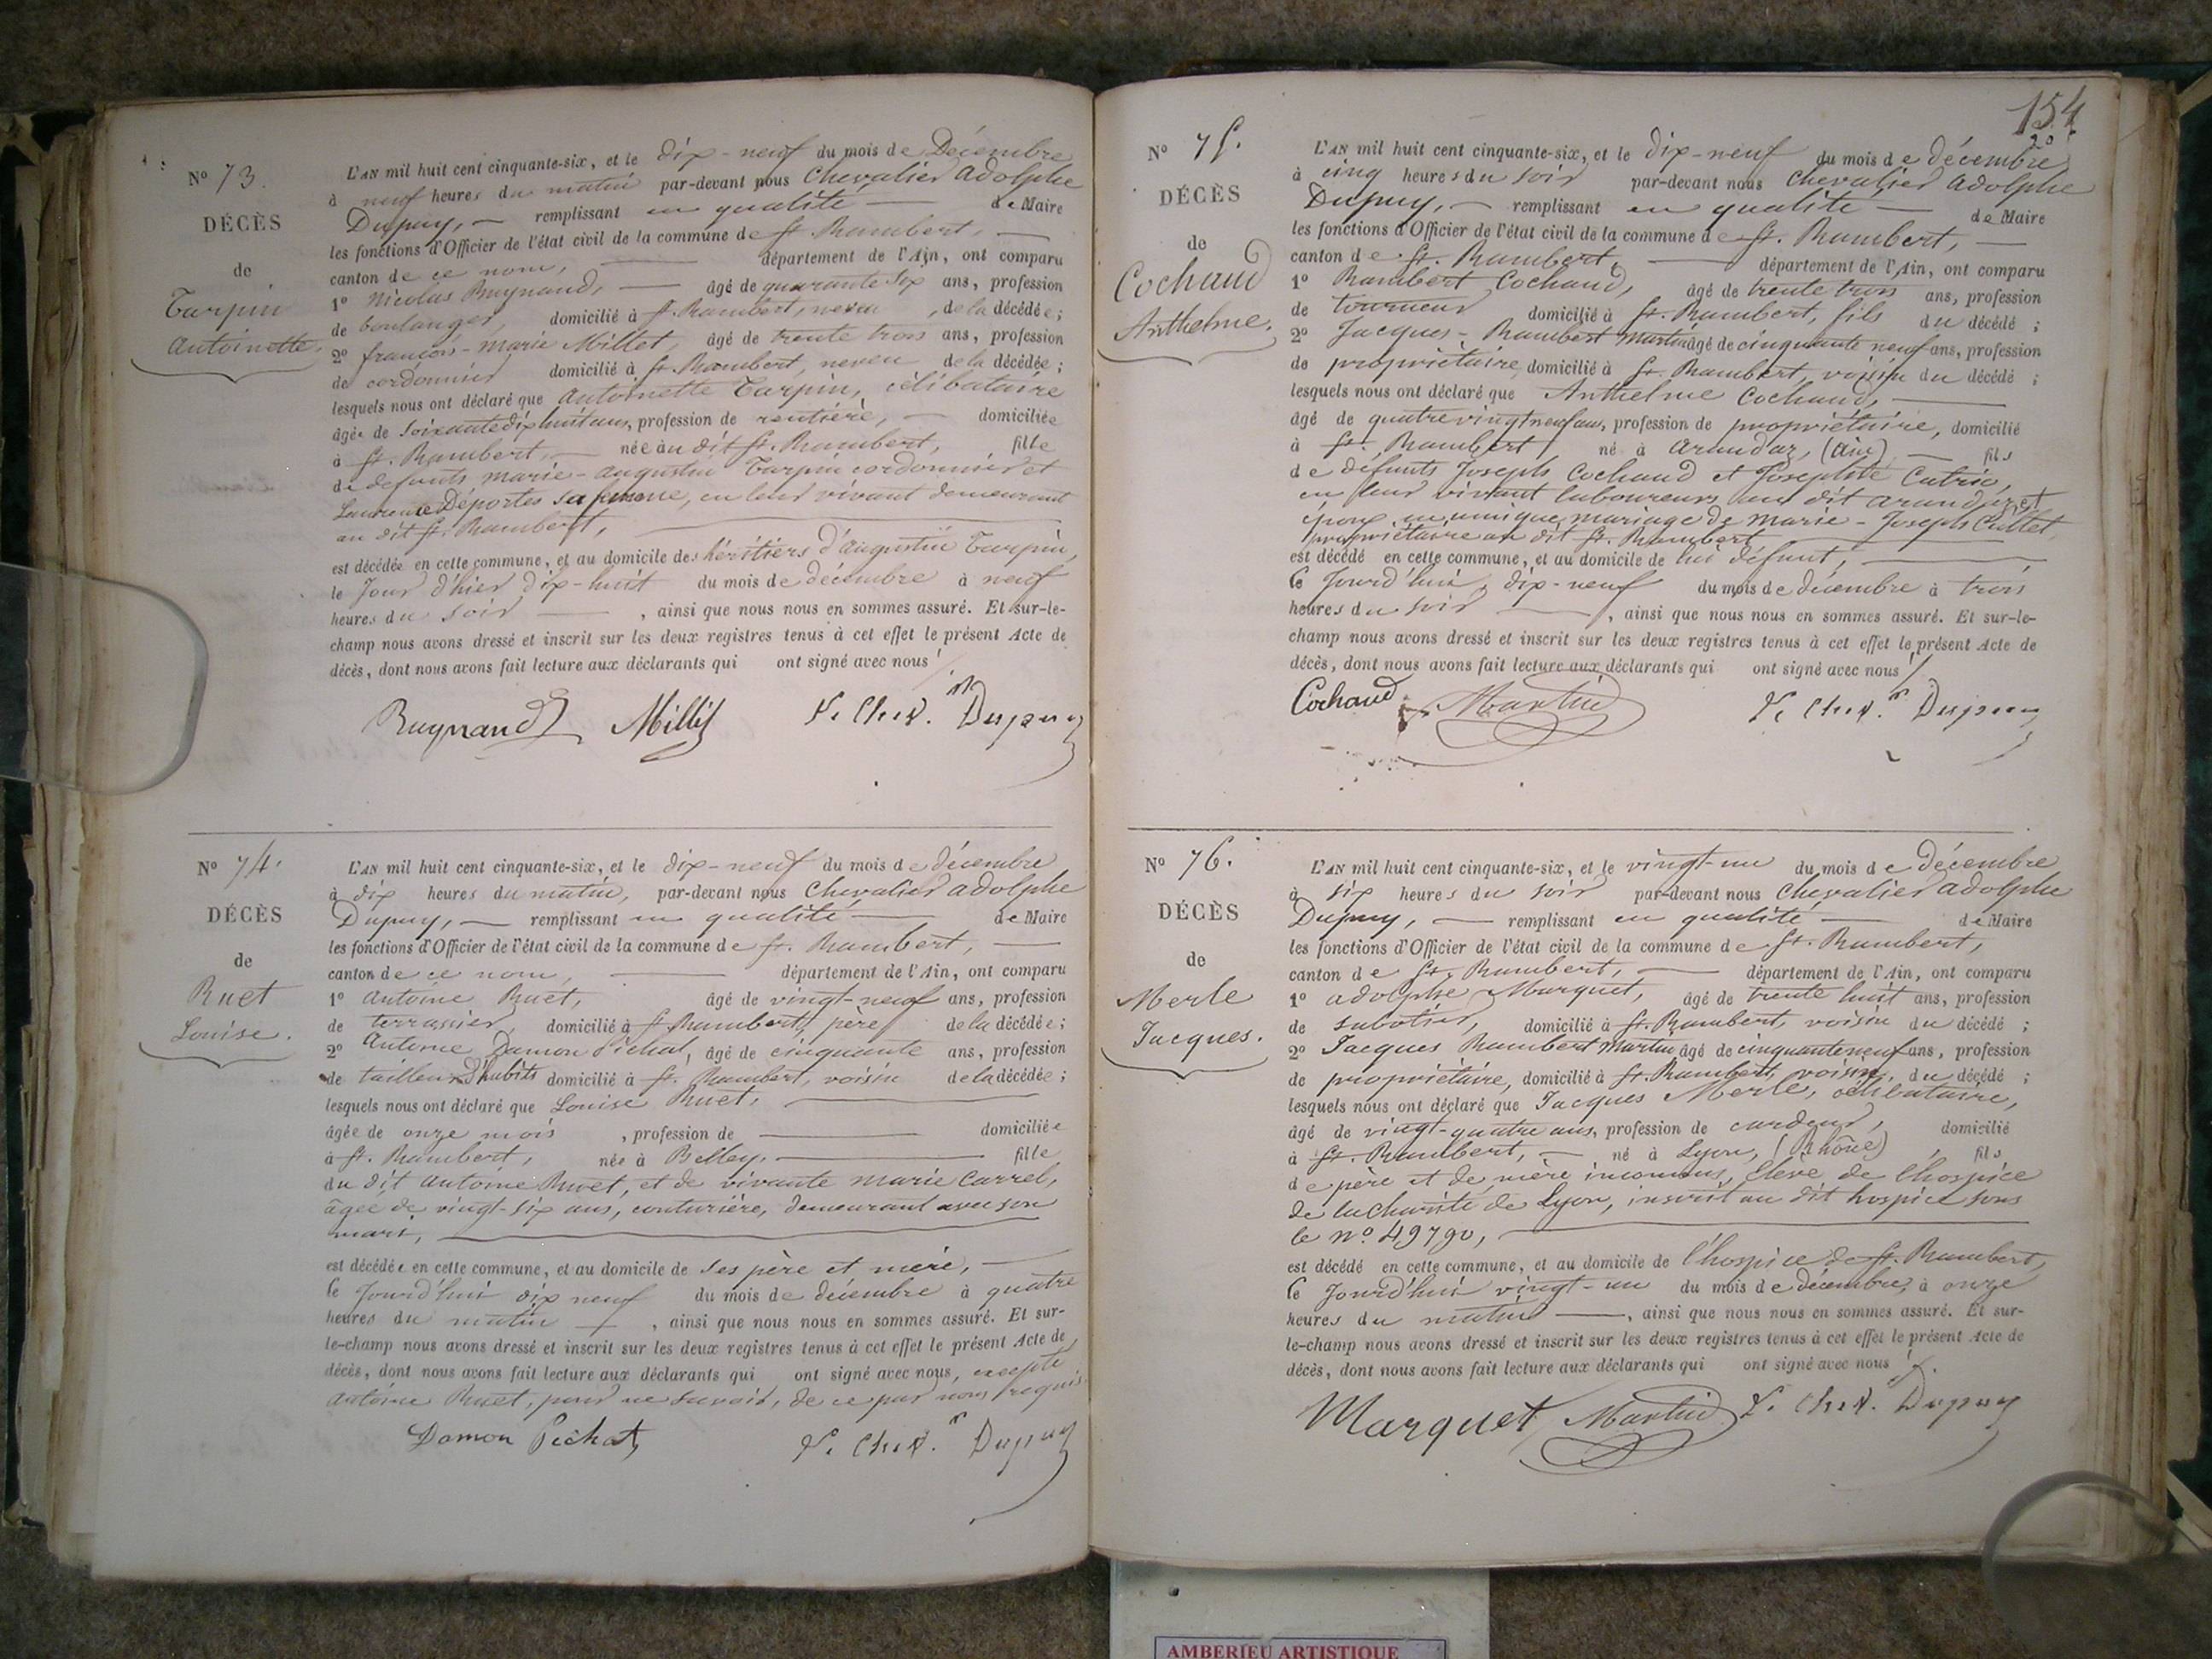 Nº 73.
DÉCÈS
de
Turpin
Antoinette.
L'AN mil huit cent cinquante-six, et le dix-neuf du mois de Décembre
à neuf heures du matin par-devant nous Chevalier Adolphe
Dupuy, remplissant en qualité de Maire
les fonctions d'Officier de l'état civil de la commune de St. Rambert,
canton de ce nom, département de l'Ain, ont comparu
1º Nicolas Ruynaud, âgé de quarante six ans, profession
de boulanger, domicilié à St. Rambert, neveu, de la décédée;
2º françois-marie Millet, âgé de trente trois ans, profession
de cordonnier domicilié à St. Rambert, neveu de la décédée;
lesquels nous ont déclaré que Antoinette Turpin, célibataire
âgée de soixante dix huit ans, profession de rentière, domiciliée
à St. Rambert, née au dit St. Rambert, fille
de defunts marie-augustin Turpin cordonnier et
Laurence Déportes sa femme, en leur vivant demeurant
au dit St. Rambert,
est décédée en cette commune, et au domicile des héritiers d'augustin Turpin,
le Jour d'hier dix-huit du mois de décembre à neuf
heures du soir, ainsi que nous nous en sommes assuré. Et sur-le-
champ nous avons dressé et inscrit sur les deux registres tenus à cet effet le présent Acte de
décès, dont nous avons fait lecture aux déclarants qui ont signé avec nous
Ruynaud Millet Chev. Dupuy
Nº 74.
DÉCÈS
de
Ruet
Louise.
L'AN mil huit cent cinquante-six, et le dix-neuf du mois de décembre
à dix heures du matin, par-devant nous Chevalier Adolphe
Dupuy, remplissant en qualité de Maire
les fonctions d'Officier de l'état civil de la commune de St. Rambert,
canton de ce nom, département de l'Ain, ont comparu
1º Antoine Ruet, âgé de vingt-neuf ans, profession
de terrassier, domicilié à St. Rambert, père de la décédée;
2º Antoine Damon Pichat, âgé de cinquante ans, profession
de tailleur d'habits domicilié à St. Rambert, voisin de la décédée;
lesquels nous ont déclaré que Louise Ruet,
âgée de onze mois, profession de domiciliée
à St. Rambert, née à Belley, fille
du dit Antoine Ruet, et de vivante marie Carrel,
âgée de vingt-six ans, couturière, demeurant avec son
mari,
est décédée en cette commune, et au domicile de ses père et mère,
le Jourd'hui dix neuf du mois de décembre à quatre
heures du matin, ainsi que nous nous en sommes assuré. Et sur-
le-champ nous avons dressé et inscrit sur les deux registres tenus à cet effet le présent Acte de
décès, dont nous avons fait lecture aux déclarants qui ont signé avec nous, excepté
Antoine Ruet, pour ne savoir, de ce par nous requis.
Damon Pichat Chev. Dupuy
154
Nº 75.
DÉCÈS
de
Cochaud
Anthelme.
L'AN mil huit cent cinquante-six, et le dix-neuf du mois de décembre
à cinq heures du soir par-devant nous Chevalier Adolphe
Dupuy, remplissant en qualité de Maire
les fonctions d'Officier de l'état civil de la commune de St. Rambert,
canton de St. Rambert, département de l'Ain, ont comparu
1º Rambert Cochaud, âgé de trente trois ans, profession
de tourneur domicilié à St. Rambert, fils du décédé;
2º Jacques-Rambert Martin âgé de cinquante neuf ans, profession
de propriétaire, domicilié à St. Rambert, voisin du décédé;
lesquels nous ont déclaré que Anthelme Cochaud,
âgé de quatrevingt neuf ans, profession de propriétaire, domicilié
à St. Rambert, né à Arandaz, (Ain) fils
de défunts Joseph Cochaud et Josephte Cutrie,
en leur vivant laboureurs au dit Arandaz, et
époux en unique mariage de marie-Joseph Cullet,
propriétaire au dit St. Rambert
est décédé en cette commune, et au domicile de lui défunt,
le Jourd'hui, dix-neuf du mois de décembre à trois
heures du soir, ainsi que nous nous en sommes assuré. Et sur-le-
champ nous avons dressé et inscrit sur les deux registres tenus à cet effet le présent Acte de
décès, dont nous avons fait lecture aux déclarants qui ont signé avec nous
Cochaud Martin Chev. Dupuy
Nº 76.
DÉCÈS
de
Merle
Jacques.
L'AN mil huit cent cinquante-six, et le vingt-un du mois de Décembre
à six heures du soir par-devant nous Chevalier Adolphe
Dupuy, remplissant en qualité de Maire
les fonctions d'Officier de l'état civil de la commune de St. Rambert,
canton de St. Rambert, département de l'Ain, ont comparu
1º Adolphe Marquet, âgé de trente huit ans, profession
de sabotier, domicilié à St. Rambert, voisin du décédé;
2º Jacques Rambert Martin âgé de cinquante neuf ans, profession
de propriétaire, domicilié à St. Rambert, voisin, du décédé;
lesquels nous ont déclaré que Jacques Merle, célibataire,
âgé de vingt-quatre ans, profession de cardeur, domicilié
à St. Rambert, né à Lyon, (Rhône), fils
de père et de mère inconnus, élève de l'hospice
de la charité de Lyon, inscrit au dit hospice sous
le nº 49790,
est décédé en cette commune, et au domicile de l'hospice de St. Rambert,
le Jourd'hui vingt-un du mois de décembre, à onze
heures du matin, ainsi que nous nous en sommes assuré. Et sur-
le-champ nous avons dressé et inscrit sur les deux registres tenus à cet effet le présent Acte de
décès, dont nous avons fait lecture aux déclarants qui ont signé avec nous
Marquet Martin Chev. Dupuy
AMBERIEU ARTISTIQUE